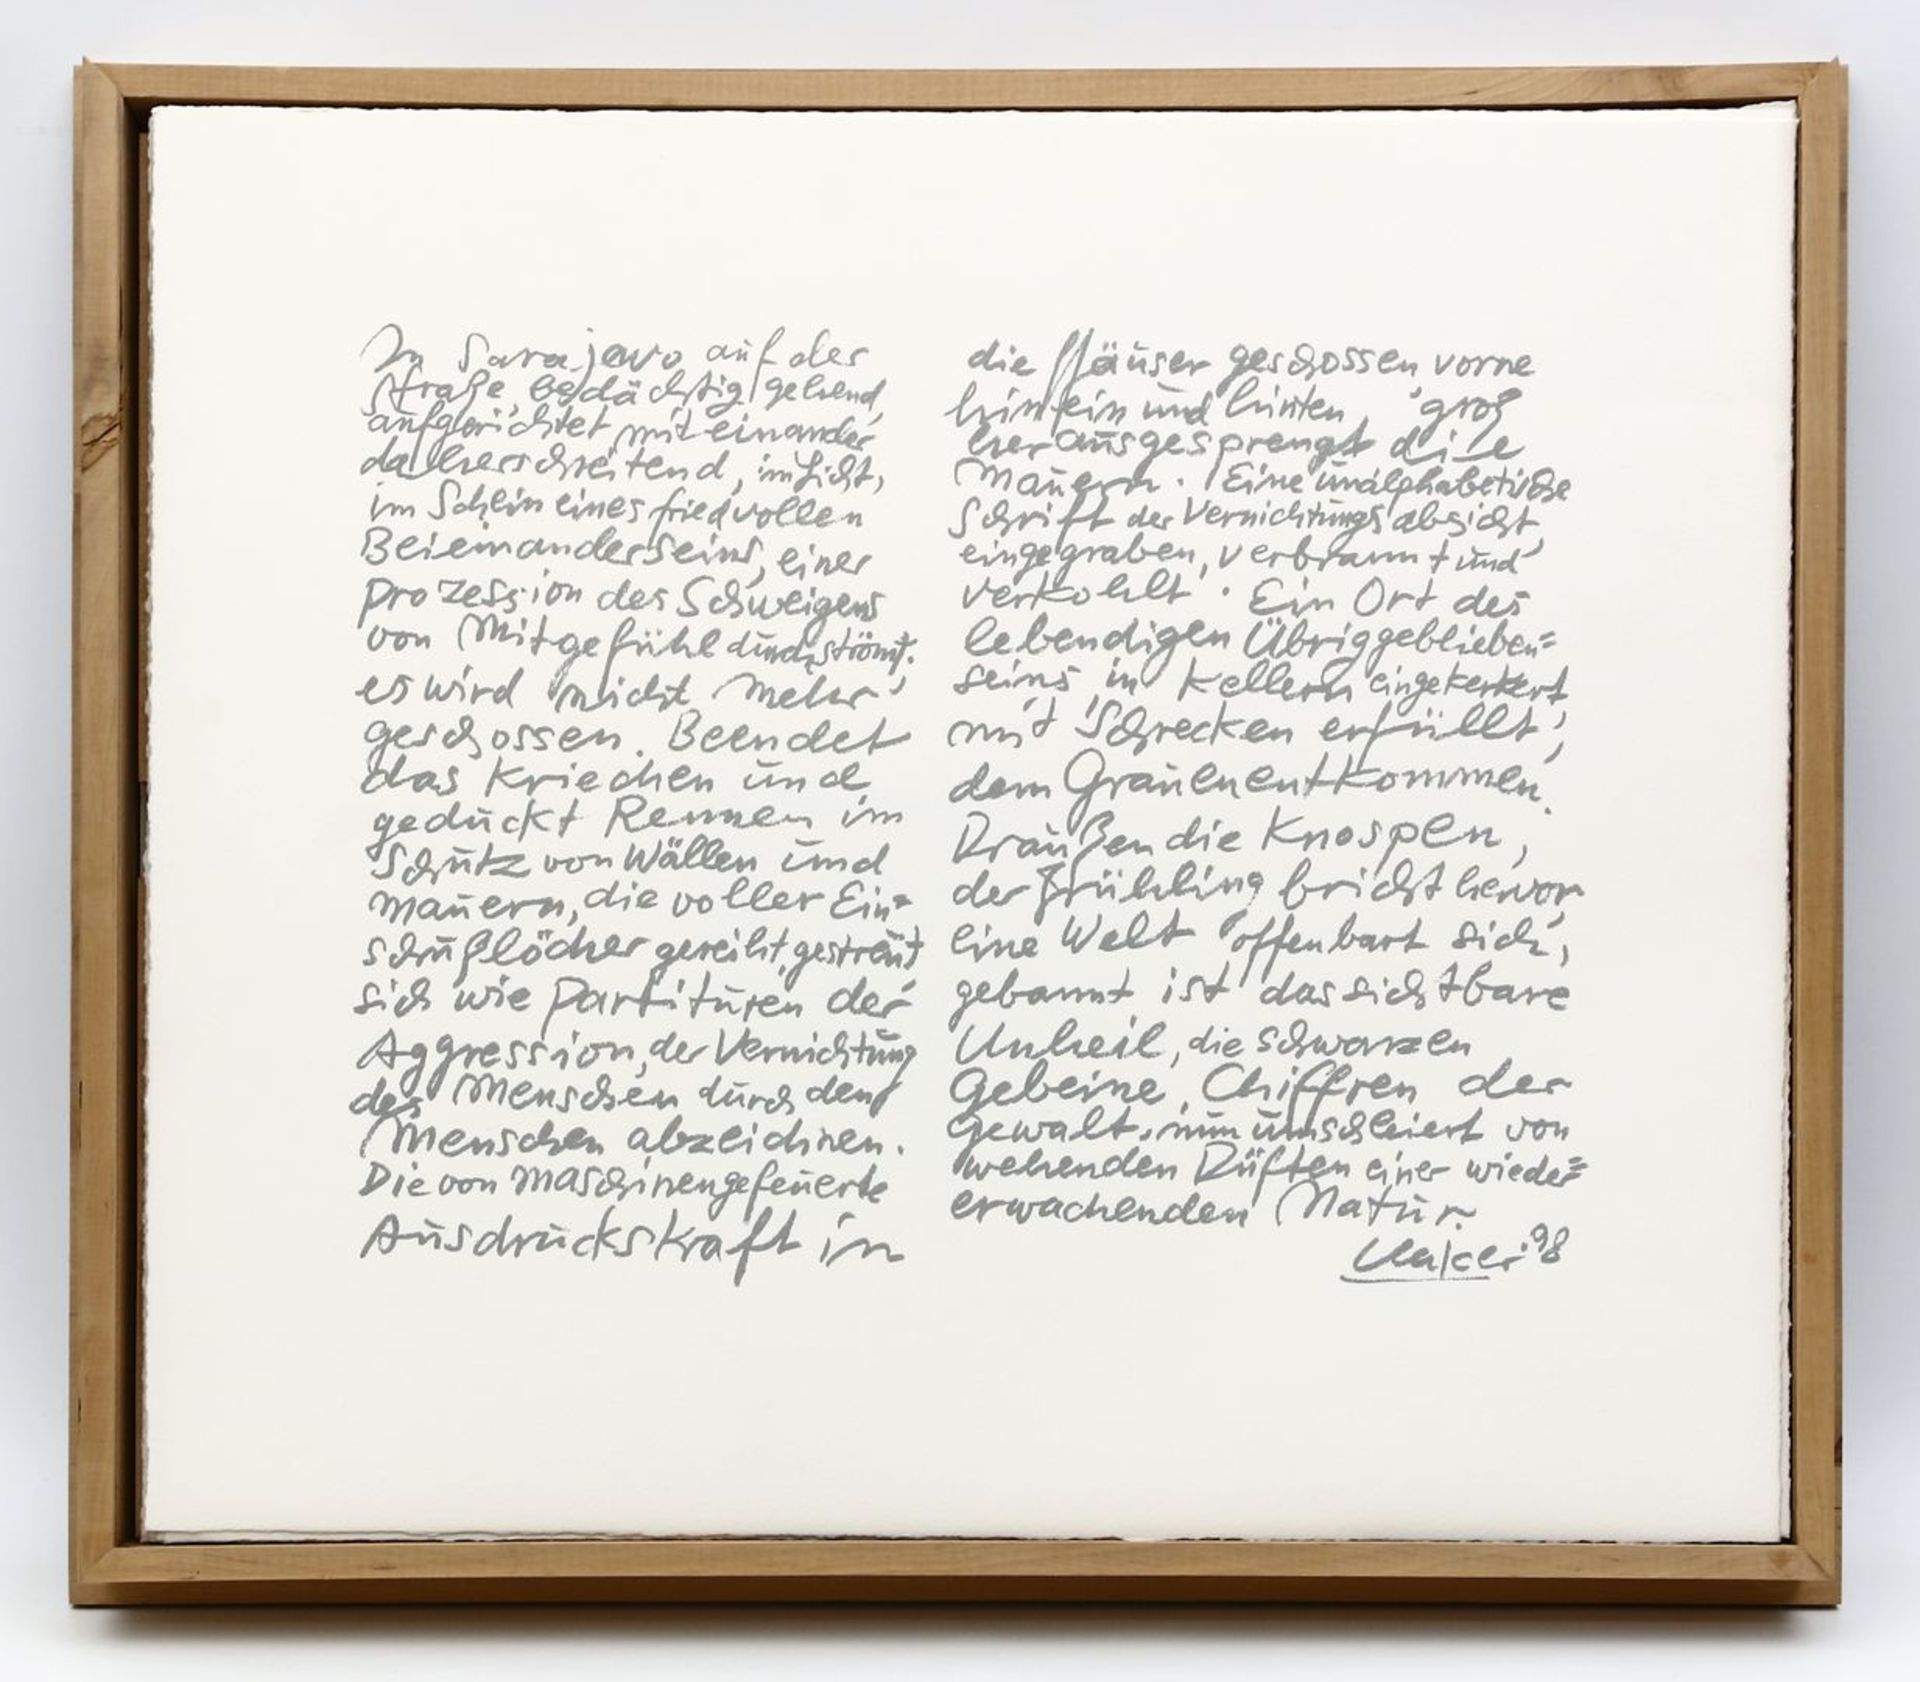 In Sarajewo auf der
Straße, bedächtig gehend,
aufgerichtet miteinander
daherschreitend, im Licht,
im Schein eines friedvollen
Beieinanderseins, einer
Prozession des Schweigens
von Mitgefühl durchströmt.
es wird nicht mehr
geschossen. Beendet
das Kriechen und
geduckt Rennen im
Schutz von Wällen und
Mauern, die voller Ein=
schußlöcher gereiht, gestreut
sich wie Partituren der
Aggression, der Vernichtung
des Menschen durch den
Menschen abzeichnen.
Die von Maschinengefeuerte
Ausdruckskraft in
die Häuser geschossen vorne
hinein und hinten, groß
herausgesprengt die
Mauern. Eine unalphabetische
Schrift der Vernichtungsabsicht,
eingegraben, verbrannt und
verkohlt. Ein Ort des
lebendigen Übriggeblieben=
seins in Kellern eingekerkert,
mit Schrecken erfüllt,
dem Grauen entkommen.
Draußen die Knospen,
der Frühling bricht hervor,
eine Welt offenbart sich,
gebannt ist das sichtbare
Unheil, die schwarzen
Gebeine, Chiffren der
Gewalt, nun umschleiert von
wehenden Düften einer wieder=
erwachenden Natur.
Uecker '98